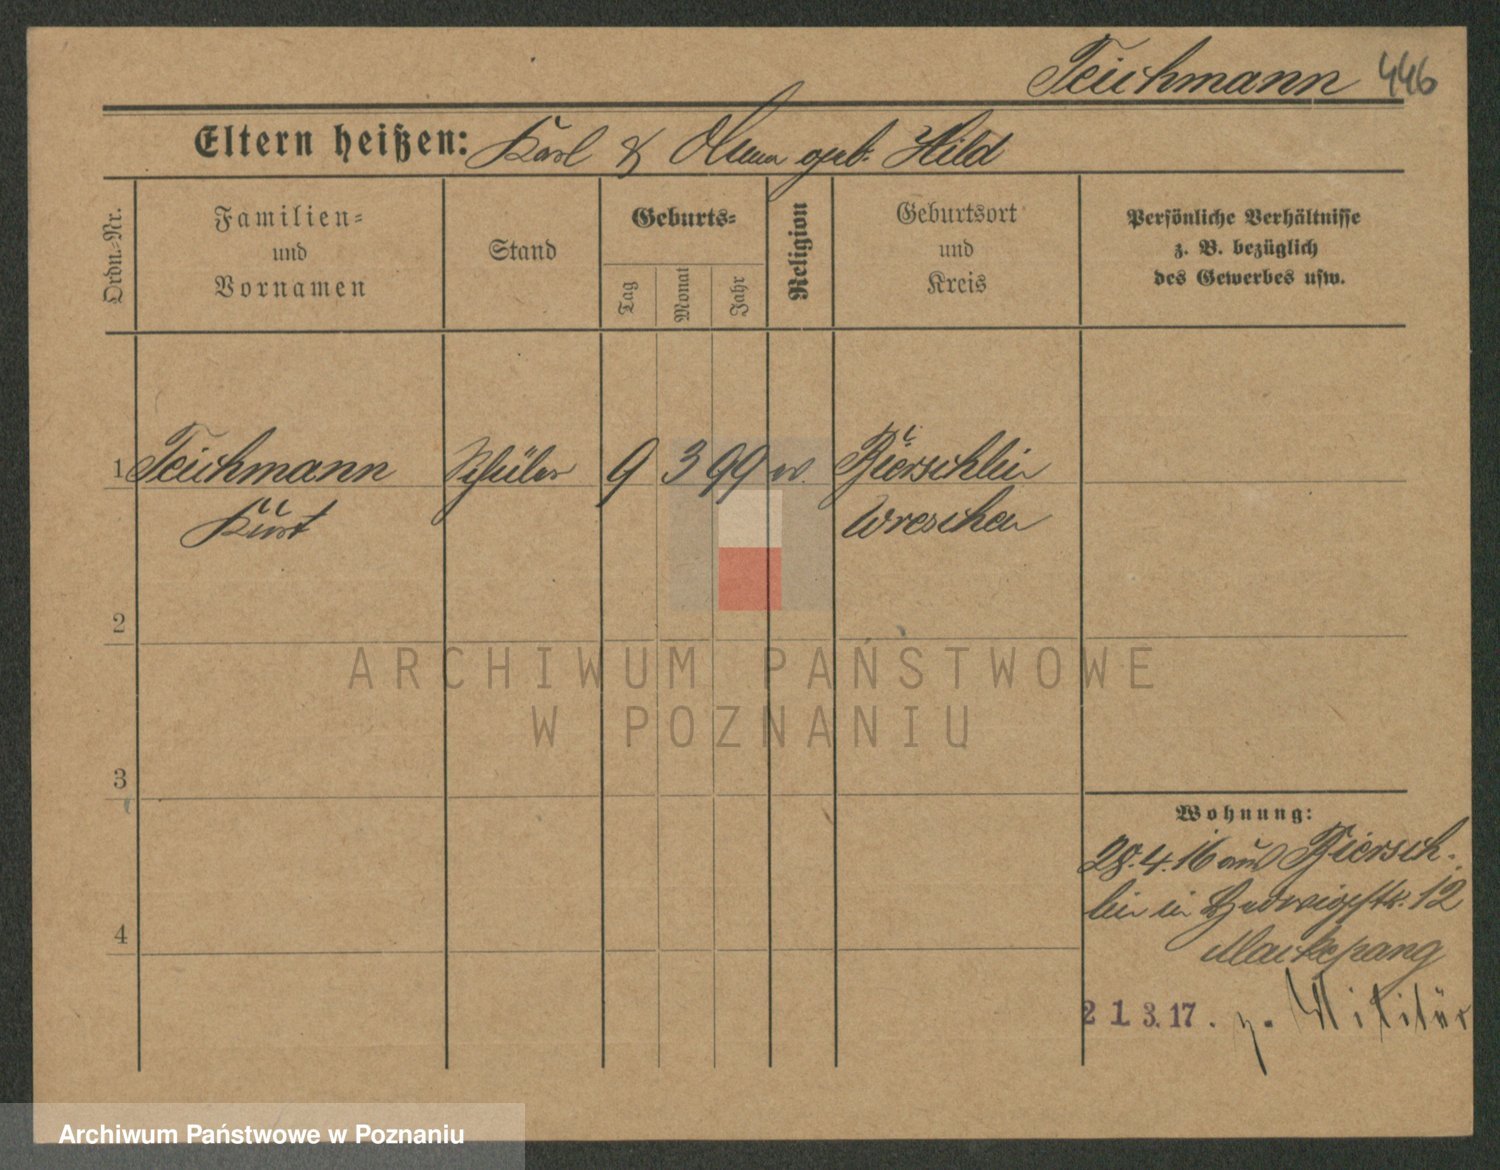 Teichmann 446
Eltern heißen: Karl & Anna geb. Hild
Ordn.-Nr.
Familien-
und
Vornamen
Stand
Geburts-
Tag
Monat
Jahr
Religion
Geburtsort
und
Kreis
Persönliche Verhältnisse
z. B. bezüglich
des Gewerbes usw.
1 Teichmann Schüler 9 3 99 ev. Bierschlin
Kurt Wreschen
2
ARCHIWUM PAŃSTWOWE
W POZNANIU
3
Wohnung:
28.4.16 aus Biersch-
lin in Hedwigstr. 12
4
21.3.17. z. Militär
Archiwum Państwowe w Poznaniu